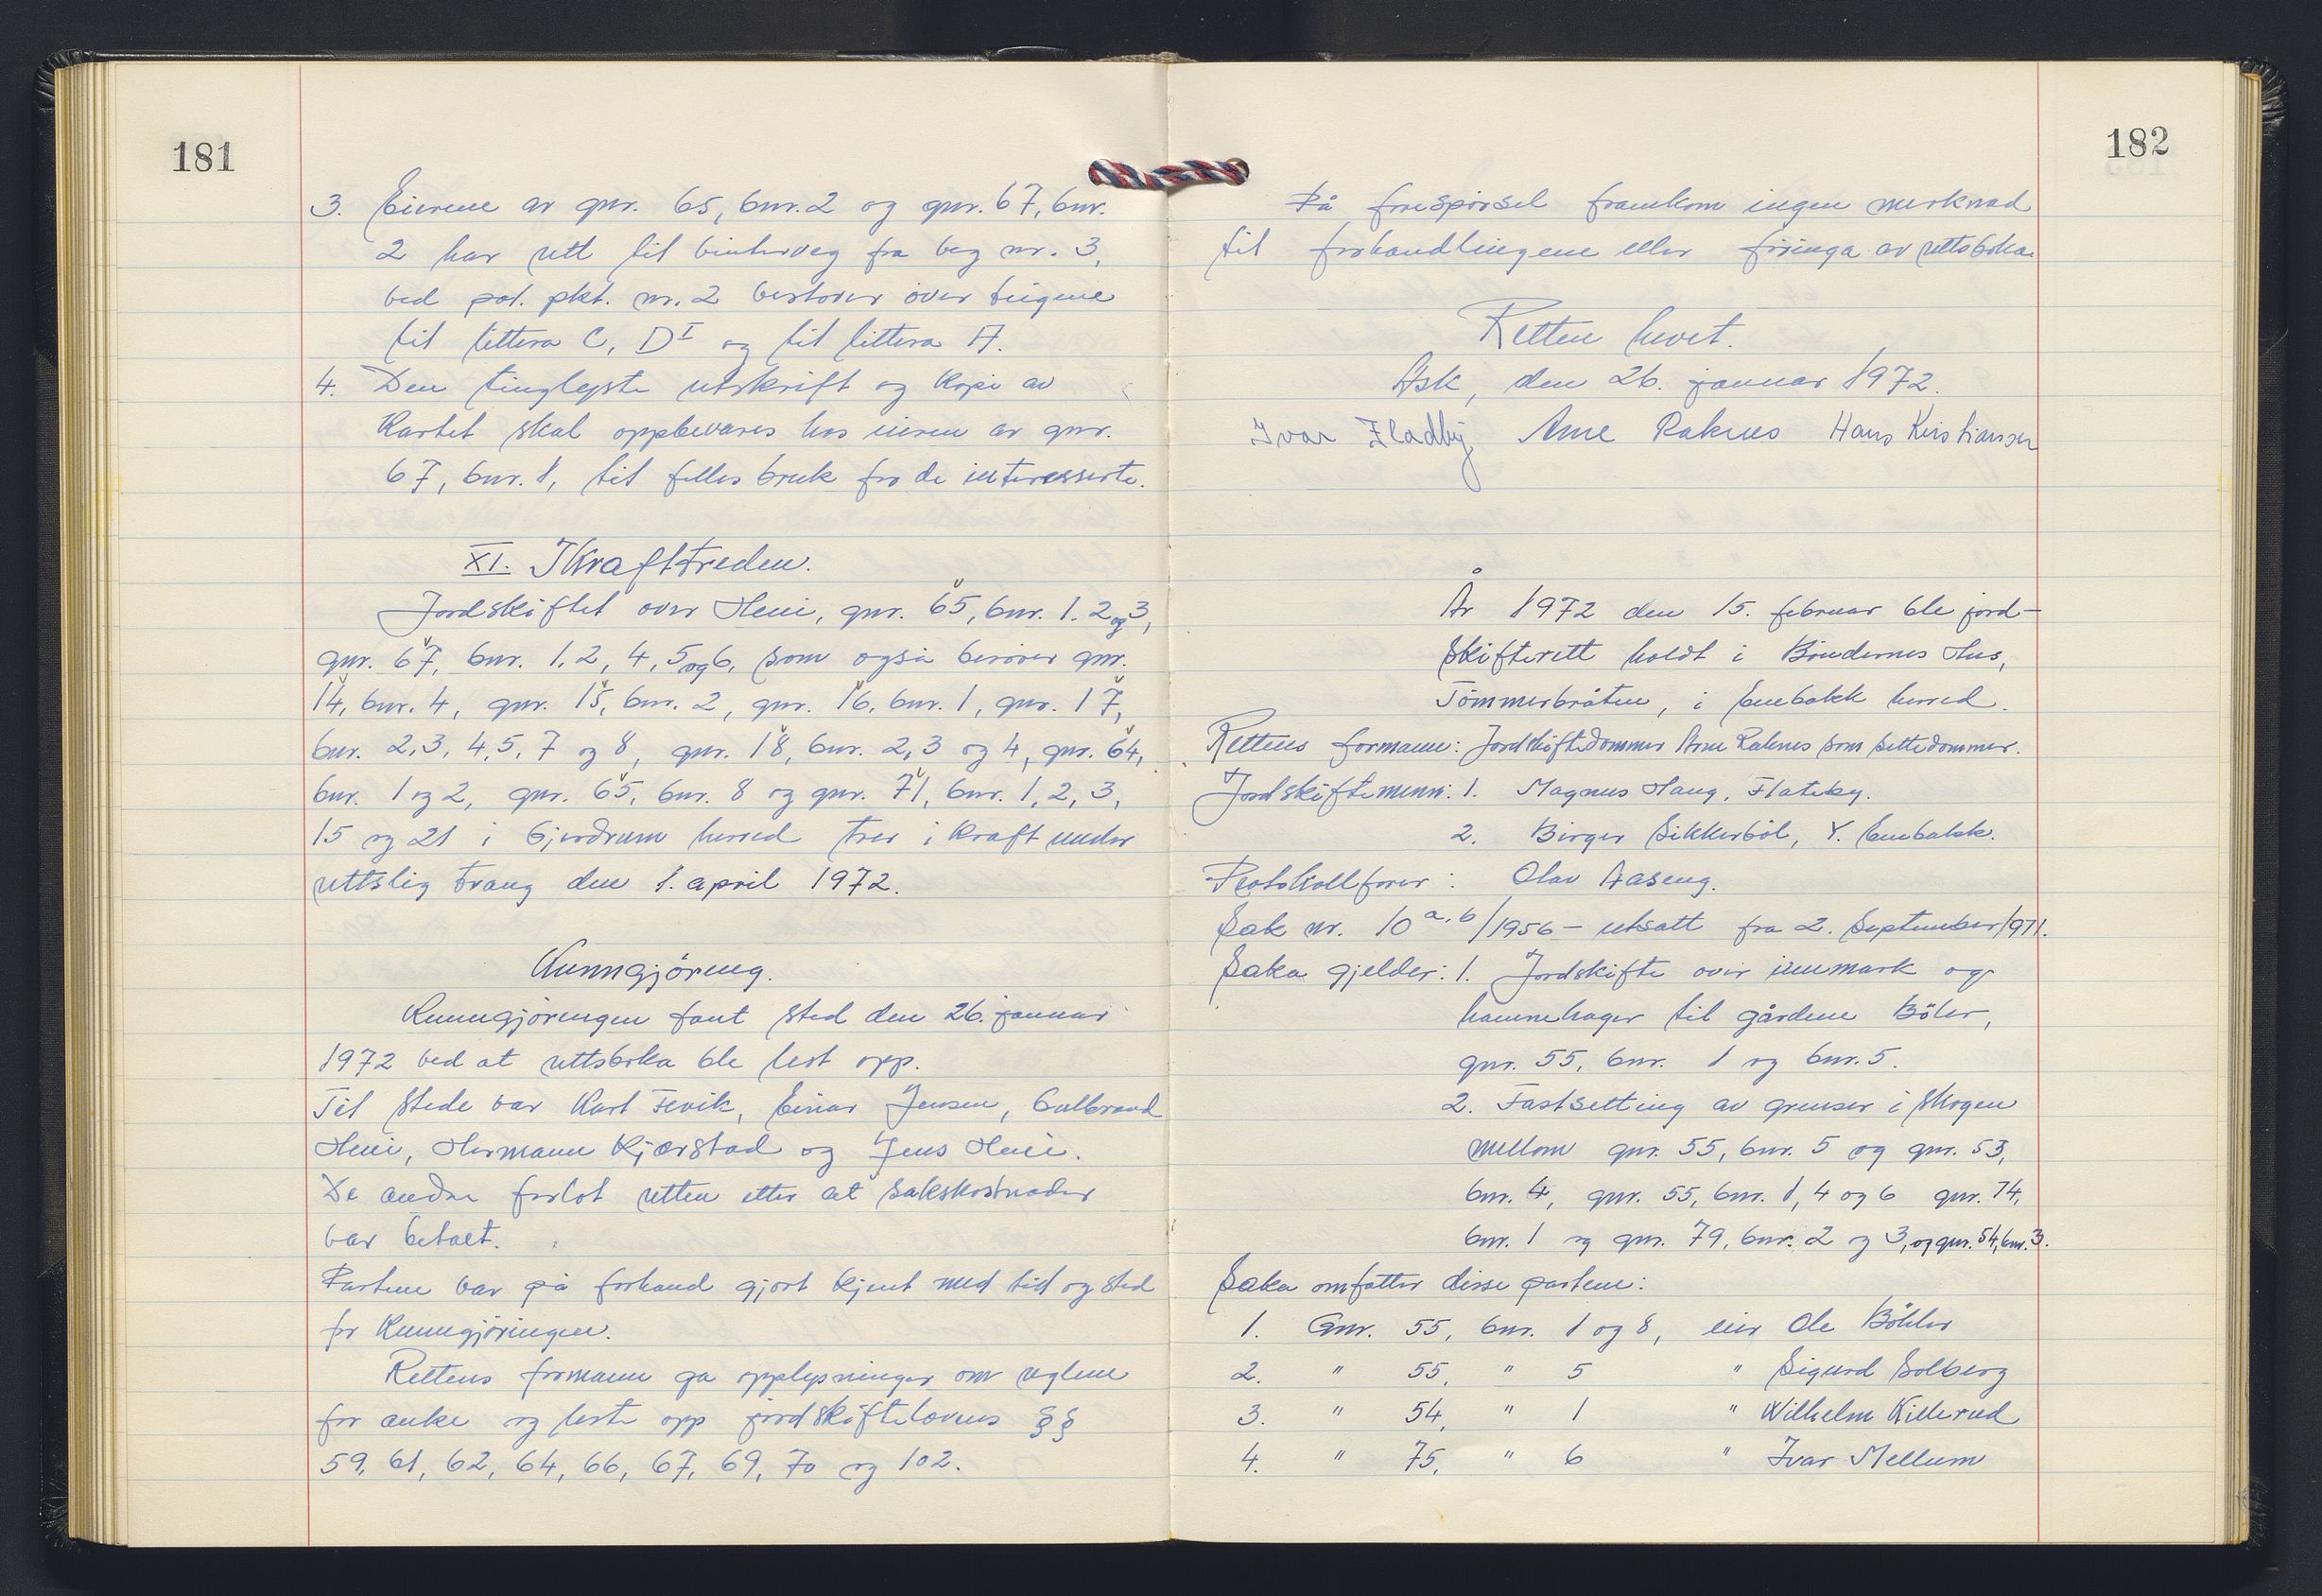 181
3. Eierene av gnr. 65, bnr. 2 og gnr. 67, bnr.
2 har rett til vinterveg fra veg nr. 3,
ved pol. pkt. nr. 2 vestover over teigene
til littera C, D I og til littera A.
4. Den tinglyste utskrift og kopi av
kartet skal oppbevares hos eieren av gnr.
67, bnr. 1, til felles bruk for de interesserte.
XI. Ikrafttreden.
Jordskiftet over Heni, gnr. 65, bnr. 1. 2 og 3,
gnr. 67, bnr. 1, 2, 4, 5 og 6, som også berører gnr.
14, bnr. 4, gnr. 15, bnr. 2, gnr. 16, bnr. 1, gnr. 17,
bnr. 2, 3, 4, 5, 7 og 8, gnr. 18, bnr. 2, 3 og 4, gnr. 64,
bnr. 1 og 2, gnr. 65, bnr. 8 og gnr. 71, bnr. 1, 2, 3,
15 og 21 i Gjerdrum herred trer i kraft under
rettslig tvang den 1. april 1972.
Kunngjöring.
Kunngjöringen fant sted den 26. januar
1972 ved at rettsboka ble lest opp.
Til stede var Karl Fevik, Einar Jensen, Gulbrand
Heni, Hermann Kjærstad og Jens Heni.
De andre forlot retten etter at sakskostnader
var betalt.
Partene var på forhand gjort kjent med tid og sted
for kunngjöringen.
Rettens formann ga opplysninger om reglene
for anke og leste opp jordskiftelovens §§
59, 61, 62, 64, 66, 67, 69, 70 og 102.
182
På forespörsel framkom ingen merknad
til forhandlingene eller föringa av rettsboka.
Retten hevet.
Ask, den 26. januar 1972.
Ivar Fladby Arne Raknes Hans Kristiansen
År 1972 den 15. februar ble jord-
skifterett holdt i Böndernes Hus,
Tömmerbråten, i Enebakk herred.
Rettens formann: Jordskiftedommer Arne Raknes som settedommer.
Jordskiftemenn: 1. Magnus Haug, Flateby.
2. Birger Sikkerböl, Y. Enebakk.
Protokollförer: Olav Aaseng.
Sak nr. 10 a, b/1956 - utsatt fra 2. September 1971.
Saka gjelder: 1. Jordskifte over innmark og
hamnehager til gårdene Böler,
gnr. 55, bnr. 1 og bnr. 5.
2. Fastsetting av grenser i skogen
mellom gnr. 55, bnr. 5 og gnr. 53,
bnr. 4, gnr. 55, bnr. 1, 4 og 6 gnr. 74,
bnr. 1 og gnr. 79, bnr. 2 og 3, og gnr. 54, bnr. 3.
Saka omfatter disse partene:
1. Gnr. 55, bnr. 1 og 8, eier Ole Böhler
2. " 55, " 5 " Sigurd Solberg
3. " 54, " 1 " Wilhelm Killerud
4. " 75, " 6 " Ivar Mellum